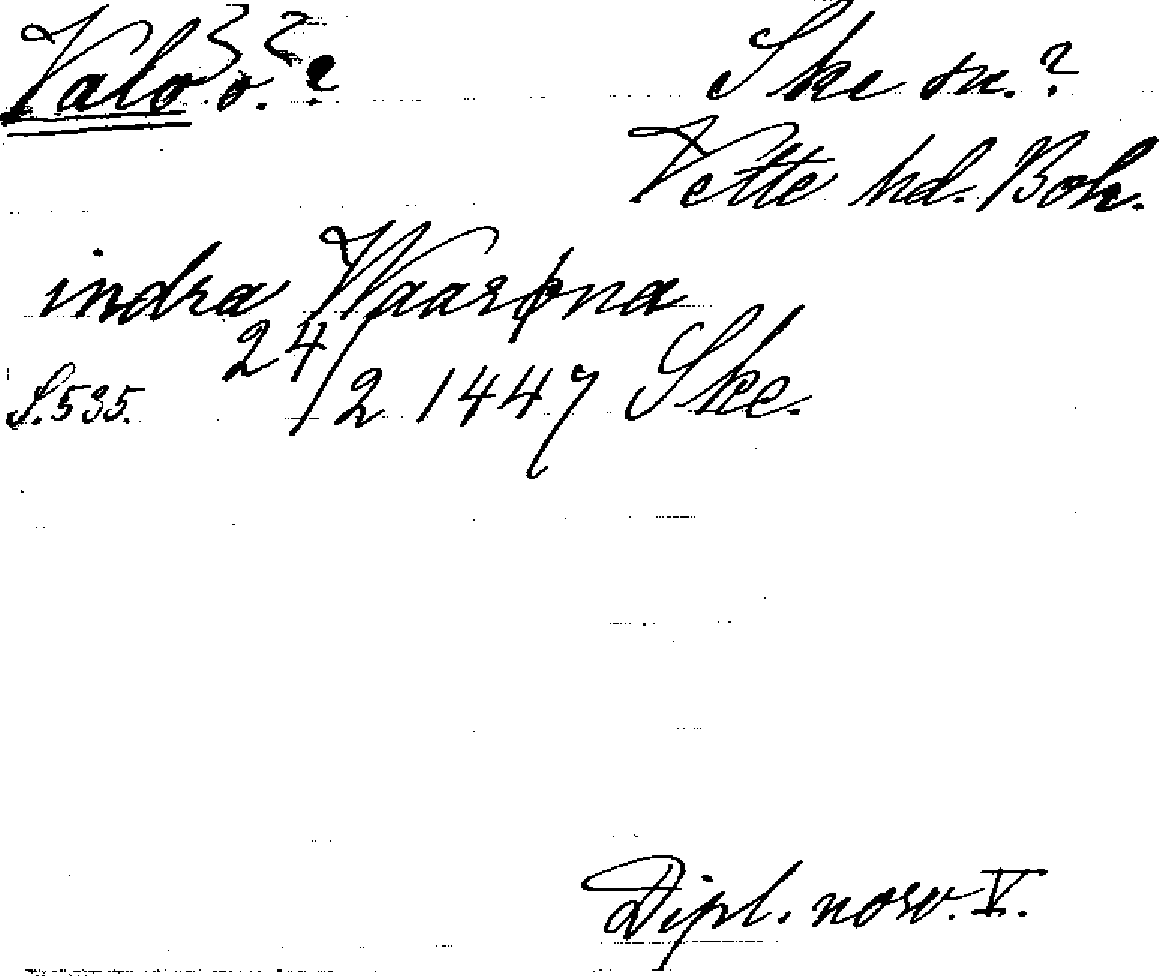 Valö ö. ?
Ske sn. ?
Vette hd. Boh.
indra Waarøna
24/2 1447 Ske.
S. 535.
Dipl. norv. V.